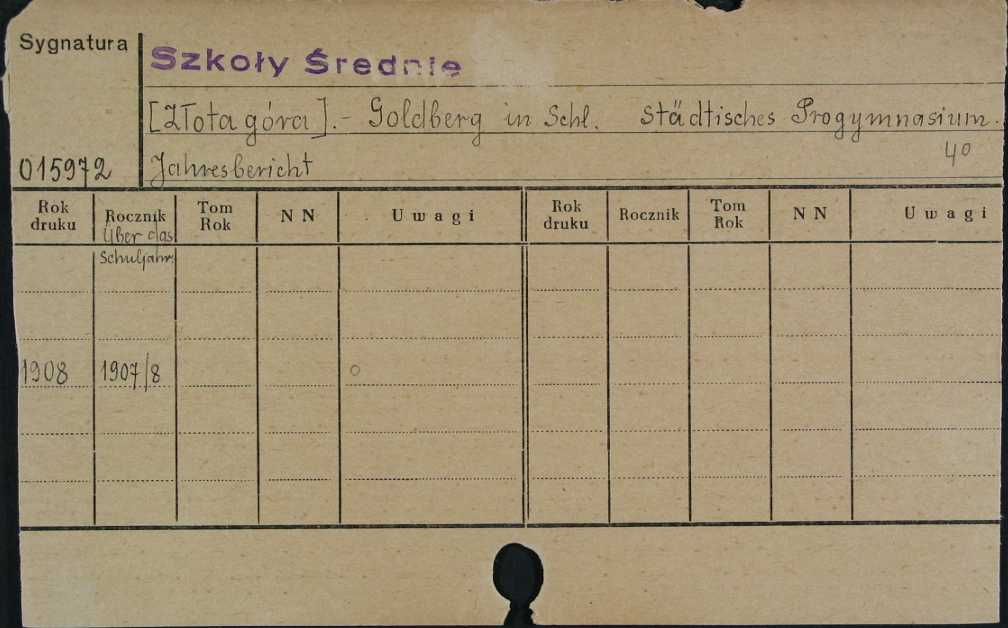 Sygnatura
Szkoły Średnie
[Złota góra].- Goldberg in Schl. Städtisches Progymnasium.
40
015972 Jahresbericht
Rok druku Rocznik Tom Rok NN Uwagi Rok druku Rocznik Tom Rok NN Uwagi
über das
Schuljahr
1908 1907/8 o